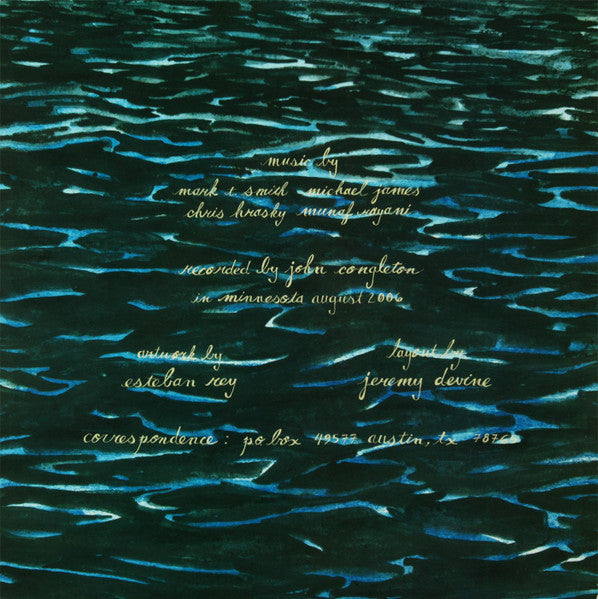 music by
mark t. smith michael james
chris hrasky munaf rayani
recorded by john congleton
in minnesota august 2006
artwork by
esteban rey
layout by
jeremy devine
correspondence : po box 49577 austin, tx